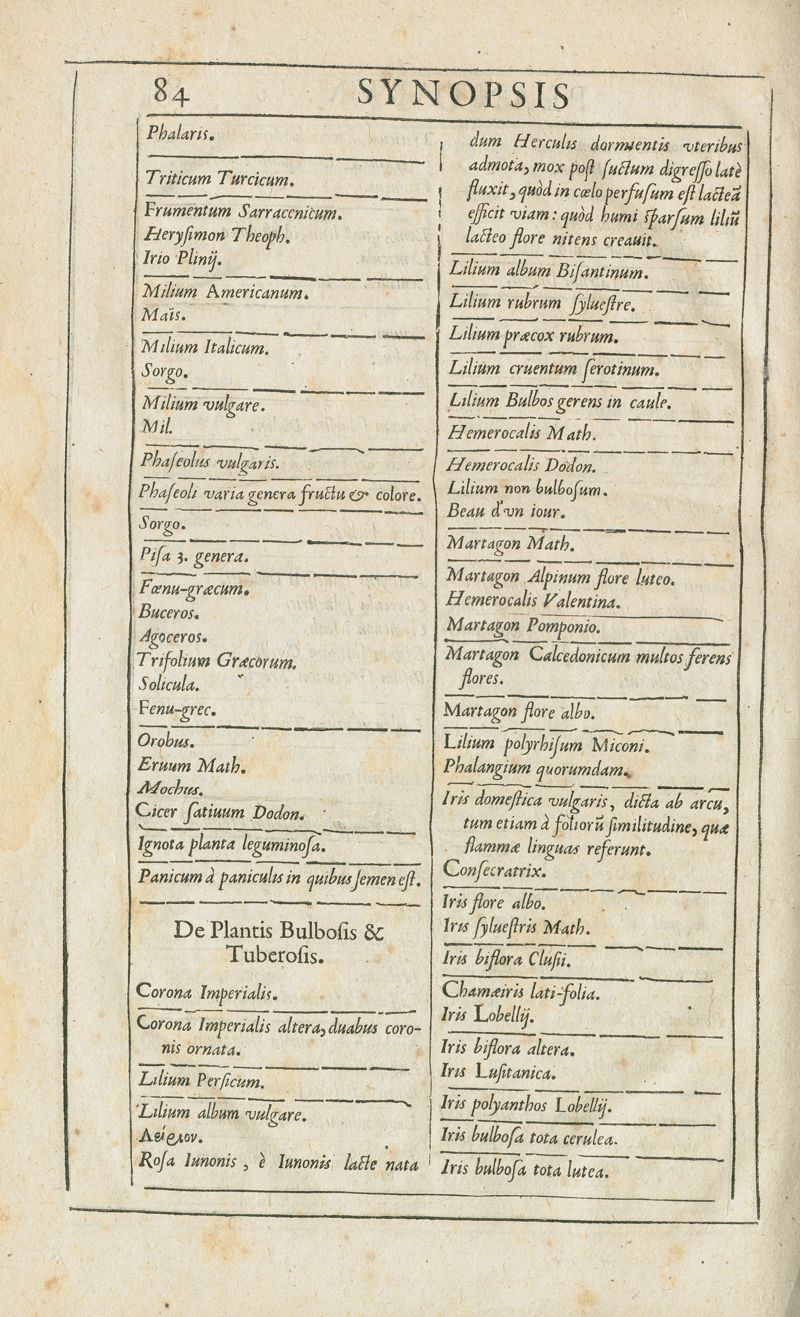 84
SYNOPSIS
Phalaris.
Triticum Turcicum.
Frumentum Sarracenicum.
Herysimon Theoph.
Irio Plinij.
Milium Americanum.
Maïs.
Milium Italicum.
Sorgo.
Milium vulgare.
Mil.
Phaſeolus vulgaris.
Phaſeoli varia genera fructu & colore.
Sorgo.
Piſa 3. genera.
Fœnu-græcum.
Buceros.
Agoceros.
Trifolium Græcorum.
Solicula.
Fenu-grec.
Orobus.
Eruum Math.
Mochus.
Cicer ſatiuum Dodon.
Ignota planta leguminoſa.
Panicum à paniculis in quibus ſemen eſt.
De Plantis Bulboſis &
Tuberoſis.
Corona Imperialis.
Corona Imperialis altera, duabus coro-
nis ornata.
Lilium Perſicum.
Lilium album vulgare.
Roſa Iunonis, è Iunonis lacte nata
dum Herculis dormientis vteribus
admota, mox poſt ſuctum digreſſo latè
fluxit, quòd in cœlo perfuſum eſt lacteã
efficit viam: quòd humi ſparſum liliũ
lacteo flore nitens creauit.
Lilium album Biſantinum.
Lilium rubrum ſylueſtre.
Lilium præcox rubrum.
Lilium cruentum ſerotinum.
Lilium Bulbos gerens in caule.
Hemerocalis Math.
Hemerocalis Dodon.
Lilium non bulboſum.
Beau d'vn iour.
Martagon Math.
Martagon Alpinum flore luteo.
Hemerocalis Valentina.
Martagon Pomponio.
Martagon Calcedonicum multos ferens
flores.
Martagon flore albo.
Lilium polyrhiſum Miconi.
Phalangium quorumdam.
Iris domeſtica vulgaris, dicta ab arcu,
tum etiam à folioru͂ ſimilitudine, quæ
flammæ linguas referunt.
Conſecratrix.
Iris flore albo.
Iris ſylueſtris Math.
Iris biflora Cluſii.
Chamæiris lati-folia.
Iris Lobellij.
Iris biflora altera.
Iris Luſitanica.
Iris polyanthos Lobellij.
Iris bulboſa tota cerulea.
Iris bulboſa tota lutea.